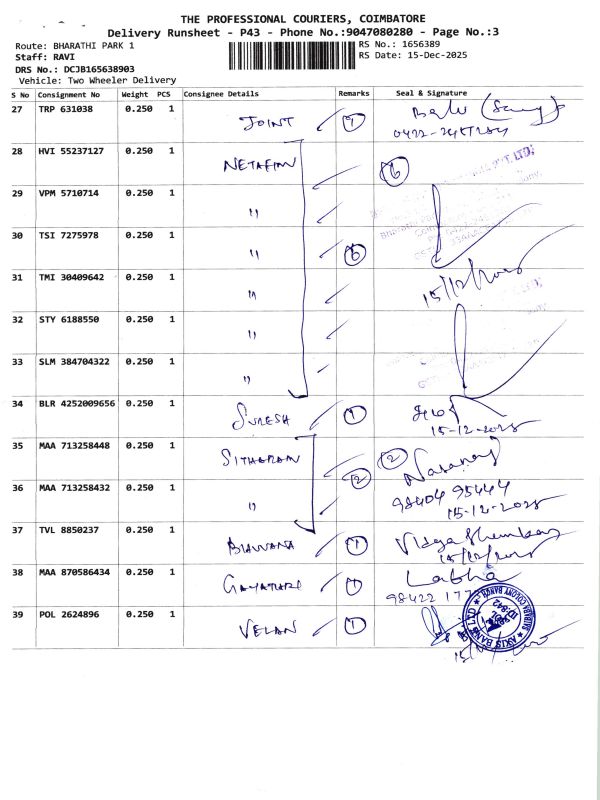 THE PROFESSIONAL COURIERS, COIMBATORE
Delivery Runsheet - P43 - Phone No.:9047080280 - Page No.:3
Route: BHARATHI PARK 1
RS No.: 1656389
Staff: RAVI
RS Date: 15-Dec-2025
DRS No.: DCJB165638903
Vehicle: Two Wheeler Delivery
S No Consignment No Weight PCS Consignee Details Remarks Seal & Signature
27 TRP 631038 0.250 1 JOINT 1
28 HVI 55237127 0.250 1 NETAFIM 6
PVT. LTD.
29 VPM 5710714 0.250 1 "
30 TSI 7275978 0.250 1 " 6
31 TMI 30409642 0.250 1 " 15/12/2025
32 STY 6188550 0.250 1 "
33 SLM 384704322 0.250 1 "
34 BLR 4252009656 0.250 1 SURESH 1
15-12-2025
35 MAA 713258448 0.250 1 SITHARAM 2
2
36 MAA 713258432 0.250 1 " 98404 95444
15-12-2025
37 TVL 8850237 0.250 1 BHAVANA 1
15/12/2025
38 MAA 870586434 0.250 1 GAYATHRI 1 Labha
98422
39 POL 2624896 0.250 1 VELAN 1
AXIS BANK LTD